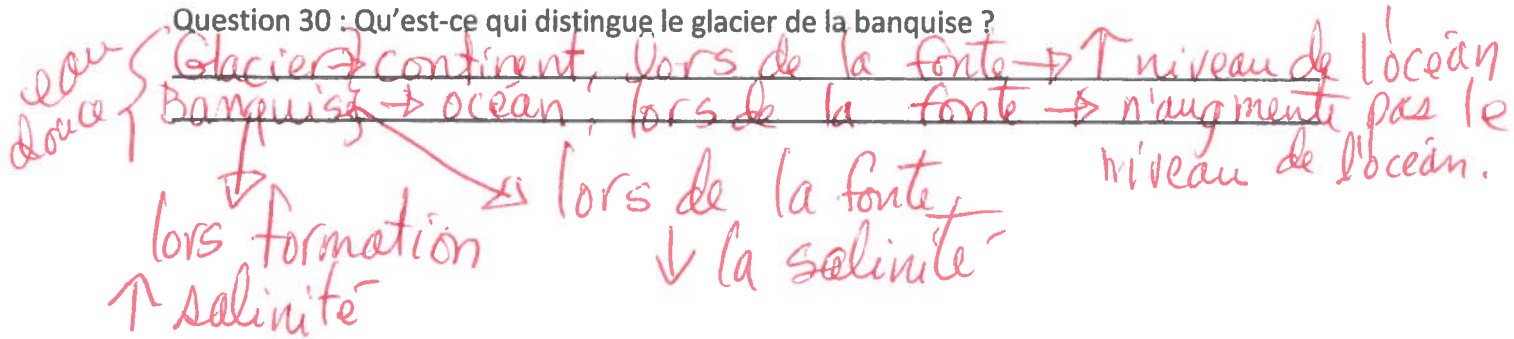 Question 30 : Qu'est-ce qui distingue le glacier de la banquise ?
eau douce { Glacier → continent, lors de la fonte → ↑ niveau de l'océan
Banquise → océan, lors de la fonte → n'augmente pas le
niveau de l'océan.
lors formation
↑ salinité
lors de la fonte
↓ la salinité